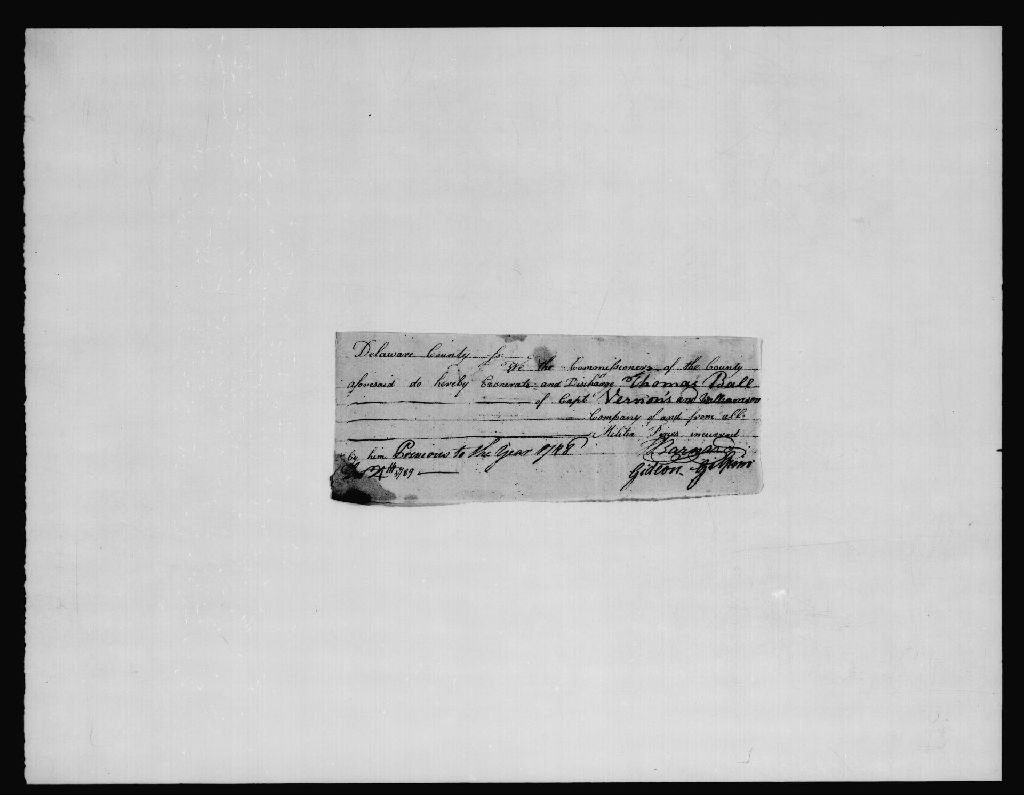 Delaware County ss.
We the Commissioners of the County
aforesaid do hereby Exonerate and Discharge Thomas Ball
of Capt Vernon's and Williamson
Company of and from all
Militia Fines incurred
by him Previous to the Year 1788
4th 1789
Gideon Gilpin